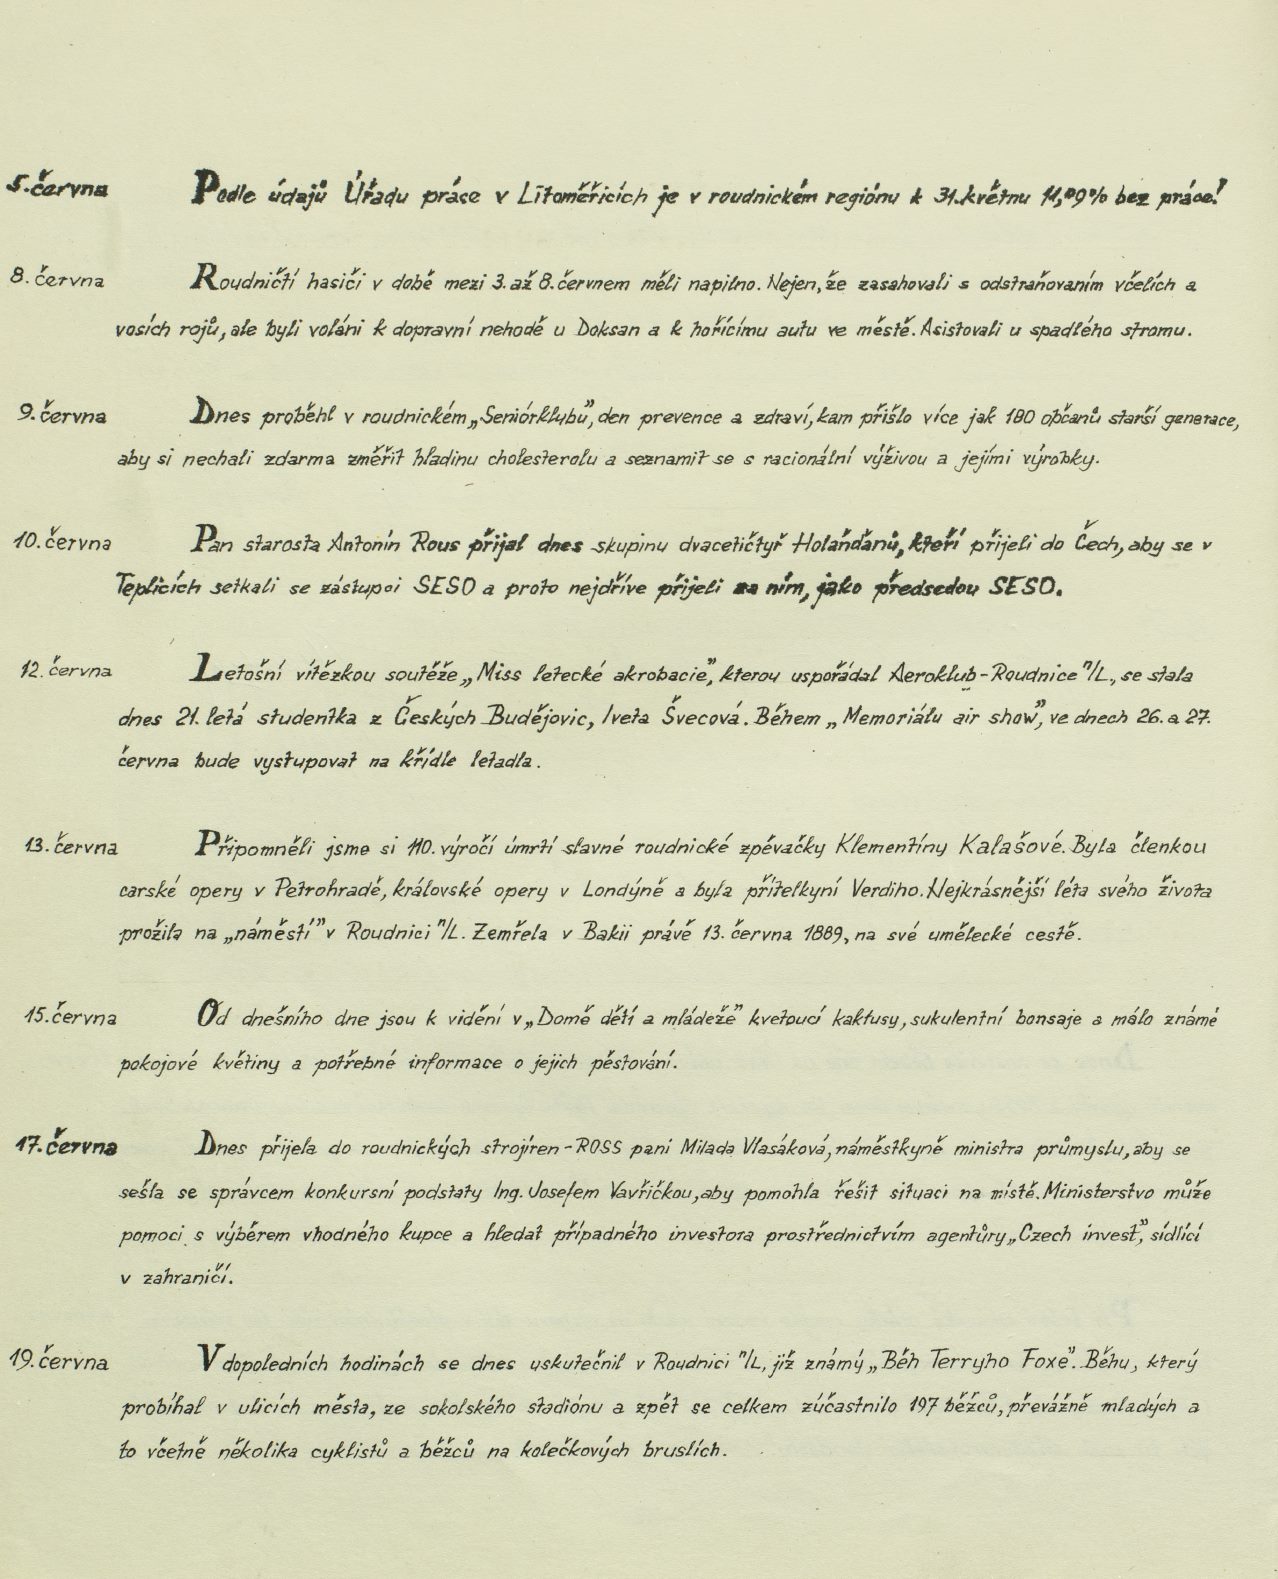 5. června Podle údajů Úřadu práce v Litoměřicích je v roudnickém regiónu k 31. květnu 11,09% bez práce!
8. června Roudničtí hasiči v době mezi 3. až 8. červnem měli napilno. Nejen, že zasahovali s odstraňovaním včelích a
vosích rojů, ale byli voláni k dopravní nehodě u Doksan a k hořícímu autu ve městě. Asistovali u spadlého stromu.
9. června Dnes proběhl v roudnickém „Seniórklubu”, den prevence a zdraví, kam přišlo více jak 180 občanů starší generace,
aby si nechali zdarma změřit hladinu cholesterolu a seznamit se s racionální výživou a jejími výrobky.
10. června Pan starosta Antonín Rous přijal dnes skupinu dvacetičtyř Holanďanů, kteří přijeli do Čech, aby se v
Teplicích setkali se zástupci SESO a proto nejdříve přijeli za ním, jako předsedou SESO.
12. června Letošní vítězkou soutěže „Miss letecké akrobacie”, kterou uspořádal Aeroklub - Roudnice n/L., se stala
dnes 21. letá studentka z Českých Budějovic, Iveta Švecová. Během „Memoriálu air show”, ve dnech 26. a 27.
června bude vystupovat na křídle letadla.
13. června Připomněli jsme si 110. výročí úmrtí slavné roudnické zpěvačky Klementíny Kalašové. Byla členkou
carské opery v Petrohradě, královské opery v Londýně a byla přítelkyní Verdiho. Nejkrásnější léta svého života
prožila na „náměstí” v Roudnici n/L. Zemřela v Bakii právě 13. června 1889, na své umělecké cestě.
15. června Od dnešního dne jsou k vidění v „Domě dětí a mládeže” kvetoucí kaktusy, sukulentní bonsaje a málo známé
pokojové květiny a potřebné informace o jejich pěstování.
17. června Dnes přijela do roudnických strojíren - ROSS paní Milada Vlasáková, náměstkyně ministra průmyslu, aby se
sešla se správcem konkursní podstaty Ing. Josefem Vavřičkou, aby pomohla řešit situaci na místě. Ministerstvo může
pomoci s výběrem vhodného kupce a hledat případného investora prostřednictvím agentůry „Czech invest”, sídlící
v zahraničí.
19. června V dopoledních hodinách se dnes uskutečnil v Roudnici n/L, již známý „Běh Terryho Foxe”. Běhu, který
probíhal v ulicích města, ze sokolského stadiónu a zpět se celkem zúčastnilo 197 běžců, převážně mladých a
to včetně několika cyklistů a běžců na kolečkových bruslích.